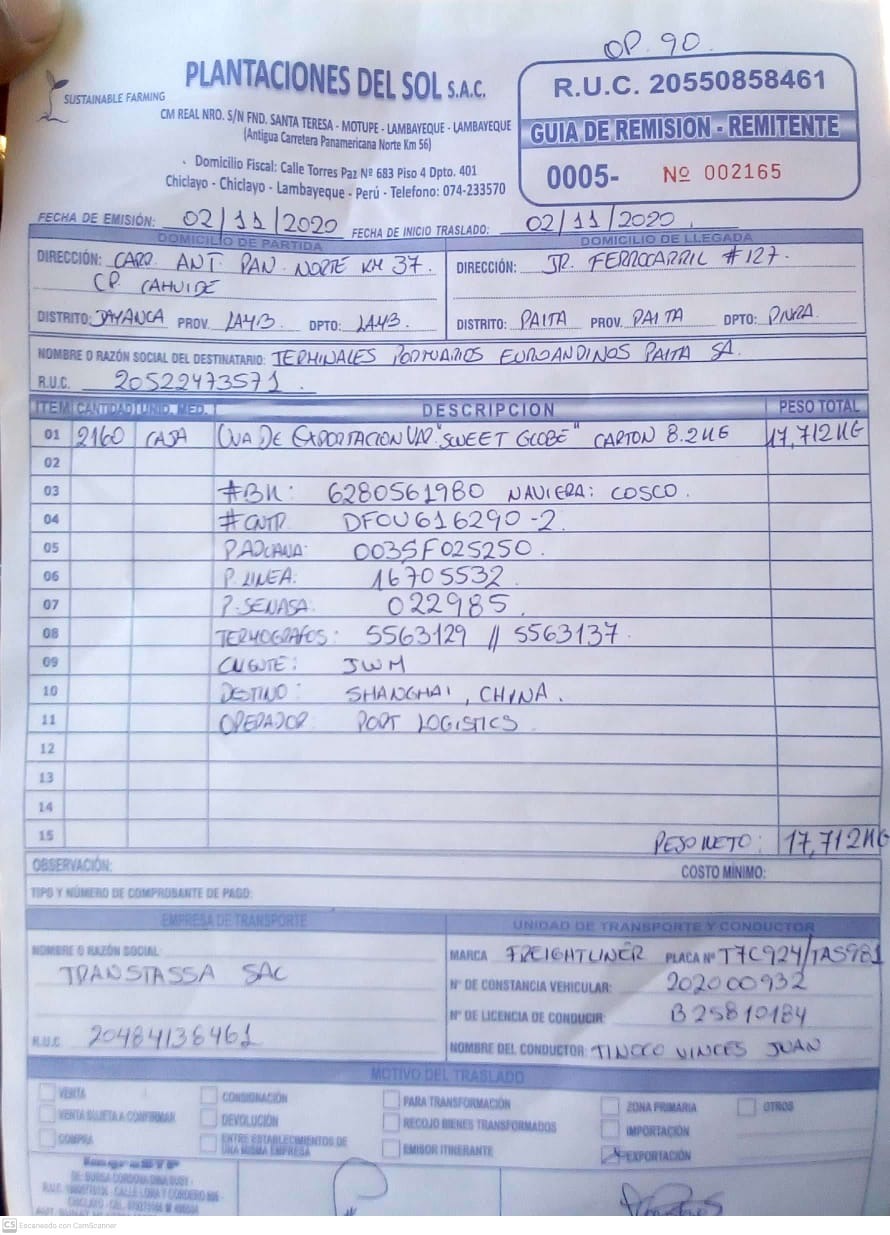 OP. 90.
SUSTAINABLE FARMING
PLANTACIONES DEL SOL S.A.C.
CM REAL NRO. S/N FND. SANTA TERESA - MOTUPE - LAMBAYEQUE - LAMBAYEQUE
(Antigua Carretera Panamericana Norte Km 56)
Domicilio Fiscal: Calle Torres Paz Nº 683 Piso 4 Dpto. 401
Chiclayo - Chiclayo - Lambayeque - Perú - Telefono: 074-233570
R.U.C. 20550858461
GUIA DE REMISION - REMITENTE
0005- Nº 002165
FECHA DE EMISIÓN: 02/11/2020 FECHA DE INICIO TRASLADO: 02/11/2020
DOMICILIO DE PARTIDA
DIRECCIÓN: CARR. ANT. PAN. NORTE KM 37.
CP. CAHUIDE
DISTRITO: JAYANCA PROV. LAMB. DPTO: LAMB.
DOMICILIO DE LLEGADA
DIRECCIÓN: JR. FERROCARRIL #127.
DISTRITO: PAITA PROV. PAITA DPTO: PIURA.
NOMBRE O RAZÓN SOCIAL DEL DESTINATARIO: TERMINALES PORTUARIOS EUROANDINOS PAITA SA.
R.U.C. 20522473571.
ITEM CANTIDAD UNID. MED. DESCRIPCION PESO TOTAL
01 2160 CAJA UVA DE EXPORTACION VAR. "SWEET GLOBE" CARTON 8.2KG 17,712KG
02
03 #BK: 6280561980 NAVIERA: COSCO.
04 #CNTR DFOU616290-2.
05 P. ADUANA: 0035F025250.
06 P. LINEA: 16705532.
07 P. SENASA: 022985.
08 TERMOGRAFOS: 5563129 // 5563137.
09 CLIENTE: JWM
10 DESTINO: SHANGHAI, CHINA.
11 OPERADOR PORT LOGISTICS.
12
13
14
15 PESO NETO: 17,712KG
OBSERVACIÓN:
COSTO MÍNIMO:
TIPO Y NÚMERO DE COMPROBANTE DE PAGO:
EMPRESA DE TRANSPORTE
NOMBRE O RAZÓN SOCIAL
TRANSTASSA SAC
R.U.C. 20484136461
UNIDAD DE TRANSPORTE Y CONDUCTOR
MARCA FREIGHTLINER PLACA Nº T7C924/TAS981
Nº DE CONSTANCIA VEHICULAR: 202000932
Nº DE LICENCIA DE CONDUCIR: B25810184
NOMBRE DEL CONDUCTOR: TINOCO VINCES JUAN
MOTIVO DEL TRASLADO
VENTA
VENTA SUJETA A CONFIRMAR
COMPRA
CONSIGNACIÓN
DEVOLUCIÓN
ENTRE ESTABLECIMIENTOS DE
UNA MISMA EMPRESA
PARA TRANSFORMACIÓN
RECOJO BIENES TRANSFORMADOS
EMISOR ITINERANTE
ZONA PRIMARIA
IMPORTACIÓN
EXPORTACIÓN
OTROS
CS Escaneado con CamScanner